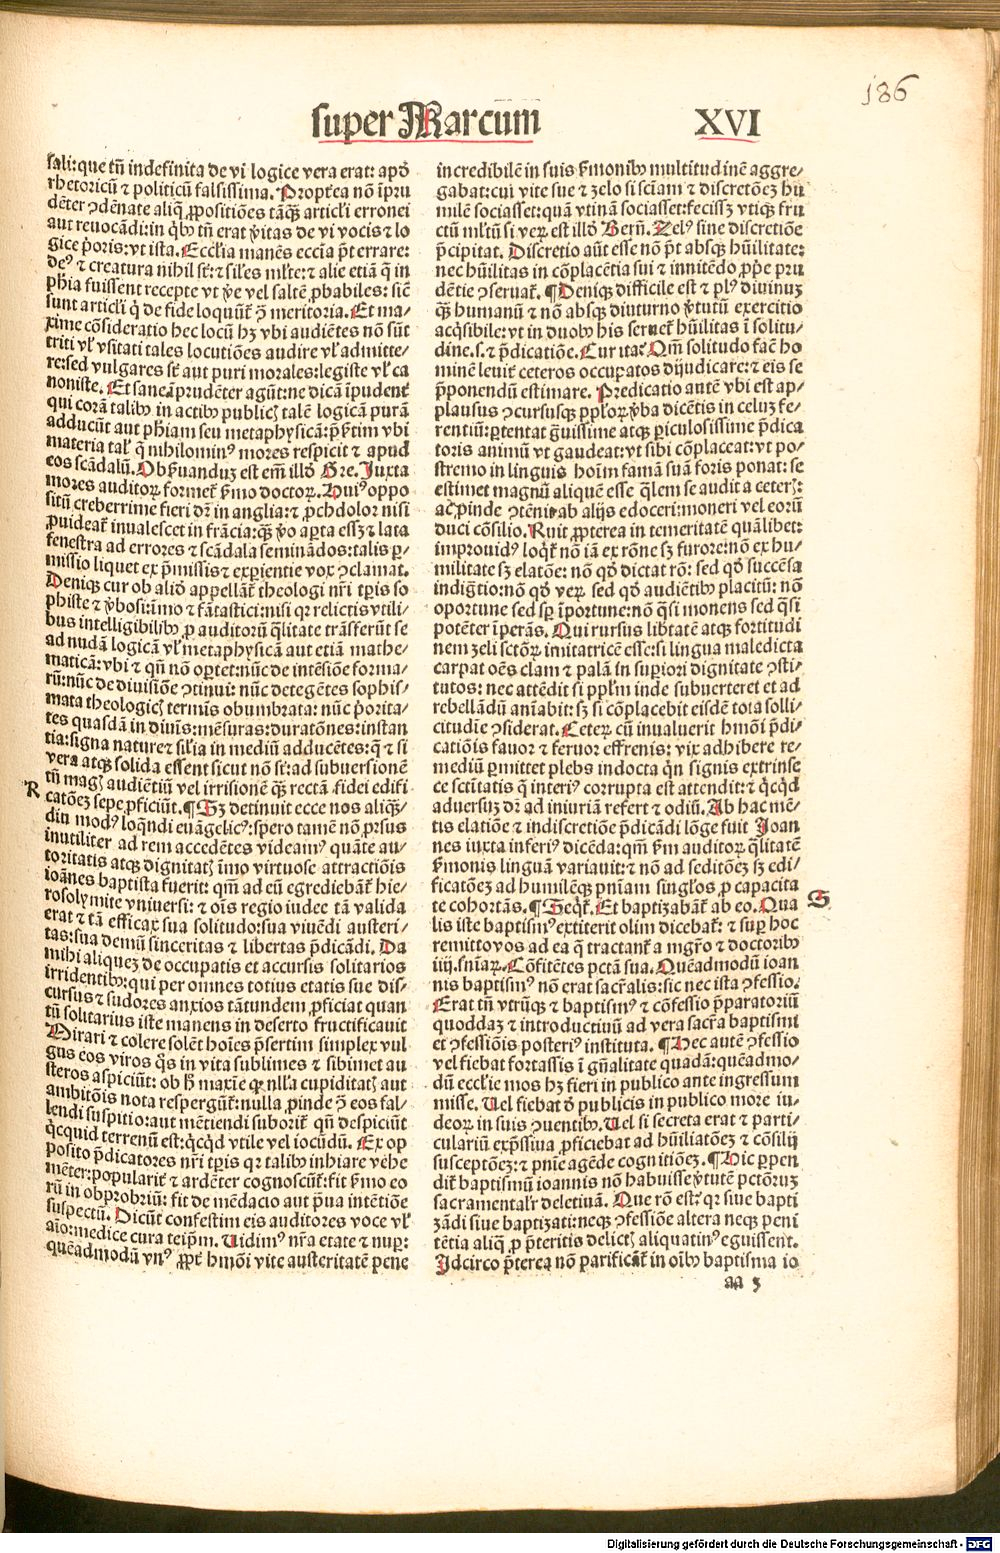 186
super Marcum̄ XVI
sali: que tñ indefinita de vi logice vera erat: apđ
rhetoricū ⁊ politicū falsissima. Propt̄ea nō īpru
dēter ꝯdēnate aliq̄ ꝓpositiōes tāq̄ꝫ articl'i erronei
aut reuocādi: in q̄bꝰ tñ erat v̄itas de vi vocis ⁊ lo
gice p̄oris: vt ista. Eccl'ia manēs eccīa p̄t errare:
deꝰ ⁊ creatura nihil st̄: ⁊ sil'es ml'te: ⁊ alie etiā q̄ in
ph̄ia fuissent recepte vt v̄e vel saltē ꝓbabiles: siē
sunt articl'i q̄ de fide loquūt̄ ꝯ̄ meritoria. Et ma-
xime cōsideratio hec locū hꝫ vbi audiētes nō sūt
triti vl' vsitati tales locutiōes audire vl' admitte-
re: sed vulgares st̄ aut puri morales: legiste vl' ca
noniste. Et sane īprudēter agūt: ne dicā īpudent̄
qui corā talibꝰ in actibꝰ publicꝭ talē logicā purā
adducūt aut ph̄iam seu metaphysicā: p̄s̄tim vbi
materia tal' q̄ nihilominꝰ mores respicit ⁊ apud
eos scādalū. Obs̄uanduꝫ est em̄ illđ Gre. Juxta
mores auditoꝝ format̄ s̄mo doctoꝝ. Huiꝰ oppo
sitū creberrime fieri dr̄ in anglia: ⁊ ꝓchdolor nisi
ꝓuideat̄ inualescet in frācia: q̄ꝫ v̄o aꝑta essꝫ ⁊ lata
fenestra ad errores ⁊ scādala seminādos: talis ꝑ-
missio liquet ex p̄missis ⁊ exꝑientie vox ꝯclamat.
Deniqꝫ cur ob aliđ appellāt̄ theologi nr̄i tꝑis so
phiste ⁊ v̄bosi: īmo ⁊ fātastici: nisi qꝛ relictis vtili-
bus intelligibilibꝰ ꝓ auditoꝝ q̄litate trāsferūt se
ad nudā logicā vl' metaphysicā aut etiā mathe-
maticā: vbi ⁊ qñ nō oꝑtet: nūc de intēsiōe forma-
rū: nūc de diuisiōe ꝯtinui: nūc detegētes sophis-
mata theologicꝭ termīs obumbrata: nūc p̄orita-
tes quasdā in diuīs: mēsuras: duratōnes: instan
tia: signa nature ⁊ sil'ia in mediū adducētes: q̄ ⁊ si
vera atqꝫ solida essent sicut nō st̄: ad subuersionē
tñ magꝭ audiētiū vel irrisionē q̄ꝫ rectā fidei edifi
R
catōeꝫ sepe ꝓficiūt. ¶ Sꝫ detinuit ecce nos aliq̄ꝫ-
diu modꝰ loq̄ndi euāgelicꝰ: spero tamē nō ꝓrsus
inutiliter ad rem accedētes videamꝰ quāte au-
toritatis atqꝫ dignitatꝭ īmo virtuose attractiōis
ioānes baptista fuerit: qm̄ ad eū egrediebāt̄ hie-
rosolymite vniuersi: ⁊ oīs regio iudee tā valida
erat ⁊ tā efficax sua solitudo: sua viuēdi austeri-
tas: sua demū sinceritas ⁊ libertas p̄dicādi. Da
mihi aliqueꝫ de occupatis et accursis solitarios
irridentibꝰ: qui per omnes totius etatis sue dis-
cursus ⁊ sudores anxios tātundem ꝓficiat quan
tū solitarius iste manens in deserto fructificauit
Mirari ⁊ colere solēt hoīes p̄sertim simplex vul
gus eos viros q̄s in vita sublimes ⁊ sibimet au
steros aspiciūt: ob h̄ maxīe qꝛ nlla cupiditatꝭ aut
ambitōis nota respergūt̄: nulla ꝓinde ꝯ̄ eos fal-
lendi suspitio: aut mētiendi suborit̄ qñ despiciūt
q̄cquid terrenū est: q̄cq̄d vtile vel iocūdū. Ex op
posito p̄dicatores nr̄i tꝑis qꝛ talibꝰ inhiare vehe
mēter: popularit̄ ⁊ ardēter cognoscūt̄: fit s̄mo eo
rū in obprobriū: fit de mēdacio aut p̄ua intētiōe
suspectū. Dicūt̄ confestim eis auditores voce vl'
aīo: medice cura teip̄m. Uidimꝰ nr̄a etate ⁊ nuꝑ:
quēadmodū vnꝰ ꝓpt̄ hmōi vite austeritatē pene
incredibilē in suis s̄monibꝰ multitudinē aggre-
gabat: cui vite sue ⁊ zelo si sciam ⁊ discretōeꝫ hu
milē sociasset: quā vtinā sociasset: fecissꝫ vtiqꝫ fru
ctū ml'tū si veꝝ est illđ Bern̄. Zelꝰ sine discretiōe
p̄cipitat. Discretio aūt esse nō p̄t absqꝫ hūilitate:
nec hūilitas in cōplacētia sui ⁊ innitēdo ꝓp̄e pru
dētie ꝯseruat̄. ¶ Deniqꝫ difficile est ⁊ plꝰ diuinuꝫ
q̄ꝫ humanū ⁊ nō absqꝫ diuturno v̄tutū exercitio
acq̄sibile: vt in duobꝰ his seruet̄ hūilitas ī solitu-
dine. s. ⁊ p̄dicatiōe. Cur ita? Qm̄ solitudo facī ho
minē leuit̄ ceteros occupatos dijudicare: ⁊ eis se
p̄ponendū estimare. Predicatio autē vbi est ap-
plausus ꝯcursusqꝫ ppl'oꝝ v̄ba dicētis in celuꝫ fe-
rentiū: ꝑtentat ḡuissime atqꝫ ꝑiculosissime p̄dica
toris animū vt gaudeat: vt sibi cōplaceat: vt po-
stremo in linguis hoīm famā suā foris ponat: se
estimet magnū aliquē esse q̄lem se audit a ceterꝭ:
ac ꝓinde ꝯtēnit ab alijs edoceri: moneri vel eorū
duci cōsilio. Ruit ꝓpterea in temeritatē quālibet:
improuidꝰ loq̄t̄ nō iā ex rōne sꝫ furore: nō ex hu-
militate sꝫ elatōe: nō qđ dictat rō: sed qđ succēsa
indign̄tio: nō qđ veꝝ sed qđ audiētibꝰ placitū: nō
oportune sed sꝑ īportune: nō q̄si monens sed q̄si
potēter īperās. Qui rursus lib̄tatē atqꝫ fortitudi
nem zeli sctōꝝ imitatricē esse: si lingua maledicta
carpat oēs clam ⁊ palā in suꝑiori dignitate ꝯsti-
tutos: nec attēdit si ppl'm inde subuerteret et ad
rebellādū anīabit: sꝫ si cōplacebit eisdē tota solli-
citudīe ꝯsiderat. Ceteꝝ cū inualuerit hmōi p̄di-
catiōis fauor ⁊ feruor effrenis: vix adhibere re-
mediū ꝑmittet plebs indocta q̄n signis extrinse
ce sctītatis q̄ interiꝰ corrupta est attendit: ⁊ q̄cq̄d
aduersuꝫ dr̄ ad iniuriā refert ⁊ odiū. Ab hac mē-
tis elatiōe ⁊ indiscretiōe p̄dicādi lōge fuit Joan
nes iuxta inferiꝰ dicēda: qm̄ s̄m auditoꝝ q̄litatē
s̄monis linguā variauit: ⁊ nō ad seditōeꝫ sꝫ edi-
ficatōeꝫ ad humilēqꝫ pnīam singl'os ꝓ capacita
te cohortās. ¶ Seq̄t̄. Et baptizabāt̄ ab eo. Qua
S
lis iste baptismꝰ extiterit olim dicebat̄: ⁊ suꝑ hoc
remitto vos ad ea q̄ tractant̄ a mgr̄o ⁊ doctoribꝰ
iiij. snīaꝝ. Cōfitētes pctā sua. Quēadmodū ioan
nis baptismꝰ nō erat sacr̄alis: sic nec ista ꝯfessio.
Erat tñ vtrūqꝫ ⁊ baptismꝰ ⁊ cōfessio p̄paratoriū
quoddaꝫ ⁊ introductiuū ad vera sacr̄a baptismi
et ꝯfessiōis posteriꝰ instituta. ¶ Hec autē ꝯfessio
vel fiebat fortassis ī gn̄alitate quadā: quēadmo-
dū eccl'ie mos hꝫ fieri in publico ante ingressum
misse. Uel fiebat đ publicis in publico more iu-
deoꝝ in suis ꝯuentibꝰ. Uel si secreta erat ⁊ parti-
culariū exp̄ssiua ꝓficiebat ad hūiliatōeꝫ ⁊ cōsilij
susceptōeꝫ: ⁊ pnīe agēde cognitiōeꝫ. ¶ Hic ꝑpen
dit̄ baptismū ioannis nō habuisse v̄tutē pctōruꝫ
sacramentalr̄ deletiuā. Que rō est? qꝛ siue bapti
zādi siue baptizati: neqꝫ ꝯfessiōe altera neqꝫ peni
tētia aliq̄ ꝓ p̄teritis delictꝭ aliquatinꝰ eguissent.
Idcirco p̄terea nō parificat̄ in oībꝰ baptisma io
aa 3
Digitalisierung gefördert durch die Deutsche Forschungsgemeinschaft - DFG